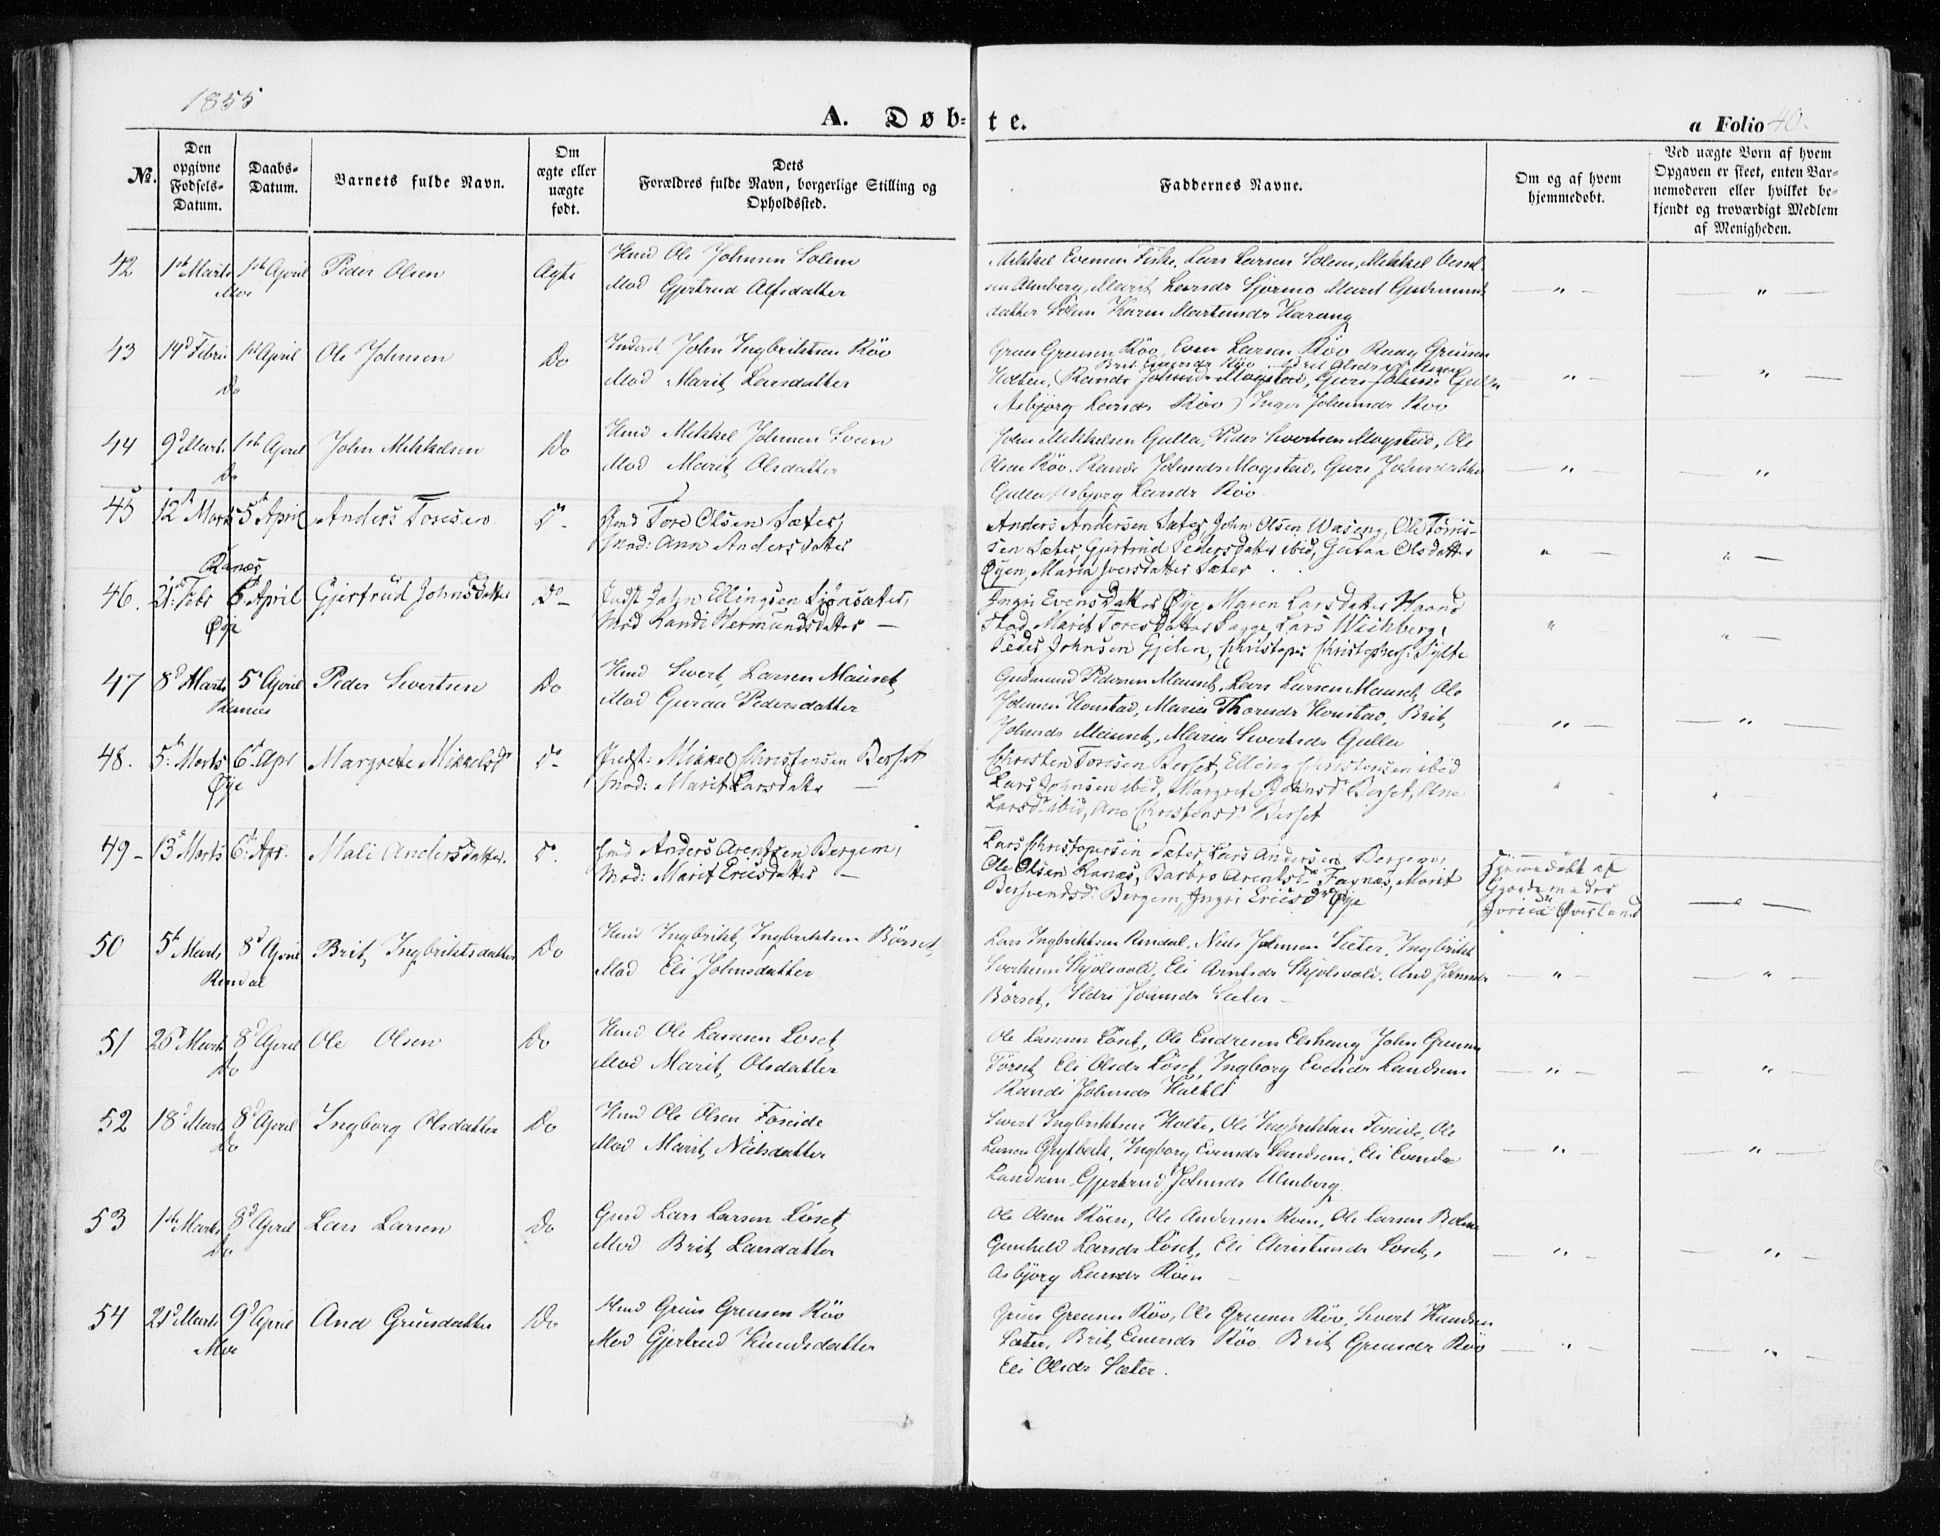 1855
A. Døb- te.
a Folio 40.
No.
Den opgivne Fødsels-Datum.
Daabs-Datum.
Barnets fulde Navn.
Om ægte eller uægte født.
Dets Forældres fulde Navn, borgerlige Stilling og Opholdssted.
Faddernes Navne.
Om og af hvem hjemmedøbt.
Ved uægte Børn af hvem Opgaven er skeet, enten Barnemoderen eller hvilket bekjendt og troværdigt Medlem af Menigheden.
42 1ste Marts 1ste April Peder Olsen Ægte Hmd Ole Johnsen Solem
Moe Mod Gjertrud Alfsdatter
Mikkel Evensen Fiske, Lars Larsen Solem, Mikkel
Almberg, Marit Larsdr Marit Gudmunds
datter Solem Karen Martinsdr Harang
43 14d Febru 1ste April Ole Johnsen Do Inderst John Ingbrihtsen Röv
Do Mod Marit Larsdatter
Greus Greusen Röv, Even Larsen Röv
Holten, (Randi Johnsdr Mogstad, Guri Johnsdr Gulla
Asbjörg Larsdr Röv) Inger Johnsdr Röv
44 9d Marts 1ste April John Mikkelsen Do Hmd Mikkel Johnsen
Do Mod Marit Olsdatter
John Mikkelsen Gulla, Peder Sivertsen Mogstad, Ole
Olsen Röv, Randi Johnsdr Mogstad, Guri Johnsdatter
Gulla, Asbjörg Larsdr Röv
45 12te Marts 5te April Anders Toresen Do Hmd Tore Olsen Sæter,
Ranæs Mod: Ann Andersdatter
Anders Andersen Sæter, John Olsen Waseng, Ole Torris-
sen Sæter, Gjertrud Pedersdatter ibid, Olsdatter
Øyen, Maria Iversdatter Sæter
46. 21de Febr 6te April Gjertrud Johnsdatter Do Indst John Ellingsen
Øye Mod Randi Hermundsdatter
Ingri Evensdatter Øye, Maren Larsdatter Haand
stad, Marit Toresdatter Lars Wichberg,
Peder Johnsen Gjelen, Christopher Christophers. Sylte
47 8d Marts 5te April Peder Sivertsen Do Hmd Sivert Larsen Mauset
Ranæs Mod Guroa Pedersdatter
Gudmund Pedersen Mauset, Lars Larsen Mauset, Ole
Johnsen Honstad, Marie Thoresdr Honstad, Brit
Johnsdr Mauset, Marie Sivertsdr Gulla
48. 5te Marts 6te Apr Margrete Mikkelsdr Do Indst: Mikkel Christensen Berset
Øye Mod: Marit Larsdatter
Christen Toresen Berset, Elling Christensen ibid
Lars Johnsen ibid, Margrete Johnsdr Berset, Ane
Larsdr ibid, Ane Christensdr Berset
49 13de Marts 6te Apr. Mali Andersdatter. Do Hmd Anders Arentsen Bergem,
Mod: Marit Ericsdatter
Lars Christophersen Sæter, Lars Andersen Bergem,
Ole Olsen Ranæs, Barbro Arentsdr Fagnæs, Marit
Bersvendsdr Bergem, Ingri Ericsdr Øye
Hjemmedøbt af
Gjordemoder
Øvesland
50 5te Marts 8d April Brit Ingbrihtsdatter Do Hmd Ingbriht Ingbrihtsen Börset
Rindal Mod Eli Johnsdatter
Lars Ingbrihtsen Rindal, Niels Johnsen Sæter, Ingbriht
Sivertsen Skjölsvold, Eli Arntsdr Skjölsvold, And
Börset, Sildri Johnsdr Sæter
51 26 Marts 8d April Ole Olsen Do Hmd Ole Larssen Löset
Do Mod Marit Olsdatter
Ole Larssen Löset, Ole Endresen Elshaug John Greusen
Törset, Eli Olsdr Löset, Ingborg Evensdr Landsem
Randi Johnsdr
52 18d Marts 8d April Ingborg Olsdatter Do Hmd Ole Olsen Foseide
Do Mod Marit Nielsdatter
Sivert Ingbrihtsen Holte, Ole Ingbrihtsen Foseide, Ole
Larsen Grytbak, Ingborg Evensdr Landsem, Eli Evensdr
Landsem, Gjertrud Johnsdr Almberg
53 1ste Marts 8d April Lars Larsen Do Gmd Lars Larsen Löset
Do Mod Brit Larsdatter
Ole Olsen Röen, Ole Andersen Röen, Ole Larsen Bolme
Gunhild Larsdr Löset, Eli Christensdr Löset,
Asbjörg Larsdr Röen
54 21d Marts 9d April And Greusdatter Do Hmd Greus Greusen Röv
Moe Mod Gjertrud Knudsdatter
Greus Greusen Röv, Ole Greusen Röv, Sivert Knudsen
Sæter, Brit Evensdr Röv, Brit Greusdr Röv
Eli Olsdr Sæter.